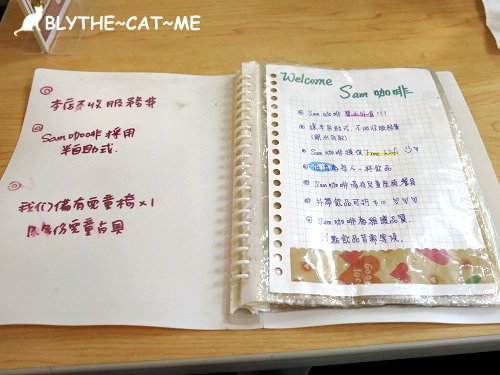 BLYTHE~CAT~ME
本店不收服務費
Sam咖啡採用
半自助式.
我们備有兒童椅x1
兒童餐具
Welcome
Sam 咖啡
Sam 咖啡 !!!
採半自助式. 不收服務費
(開水自取)
Sam 咖啡提供 Free WiFi
低消為 一杯飲品
Sam 咖啡備有兒童座椅. 餐具
外帶飲品可折 $10 ♡ ♡ ♡
Sam 咖啡為維護品質.
點飲品皆需等候.
Good
luck